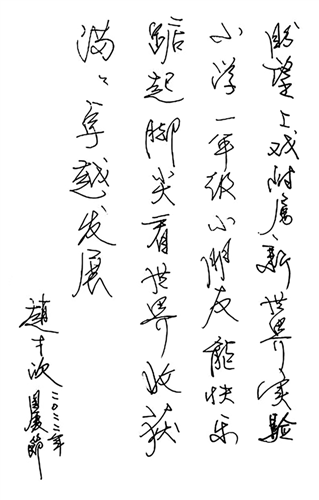 盼望上戏附属新世界实验
小学一年级小朋友能快乐
踮起脚尖看世界收获
满々卓越发展
趙才次
二〇二二年
國慶節